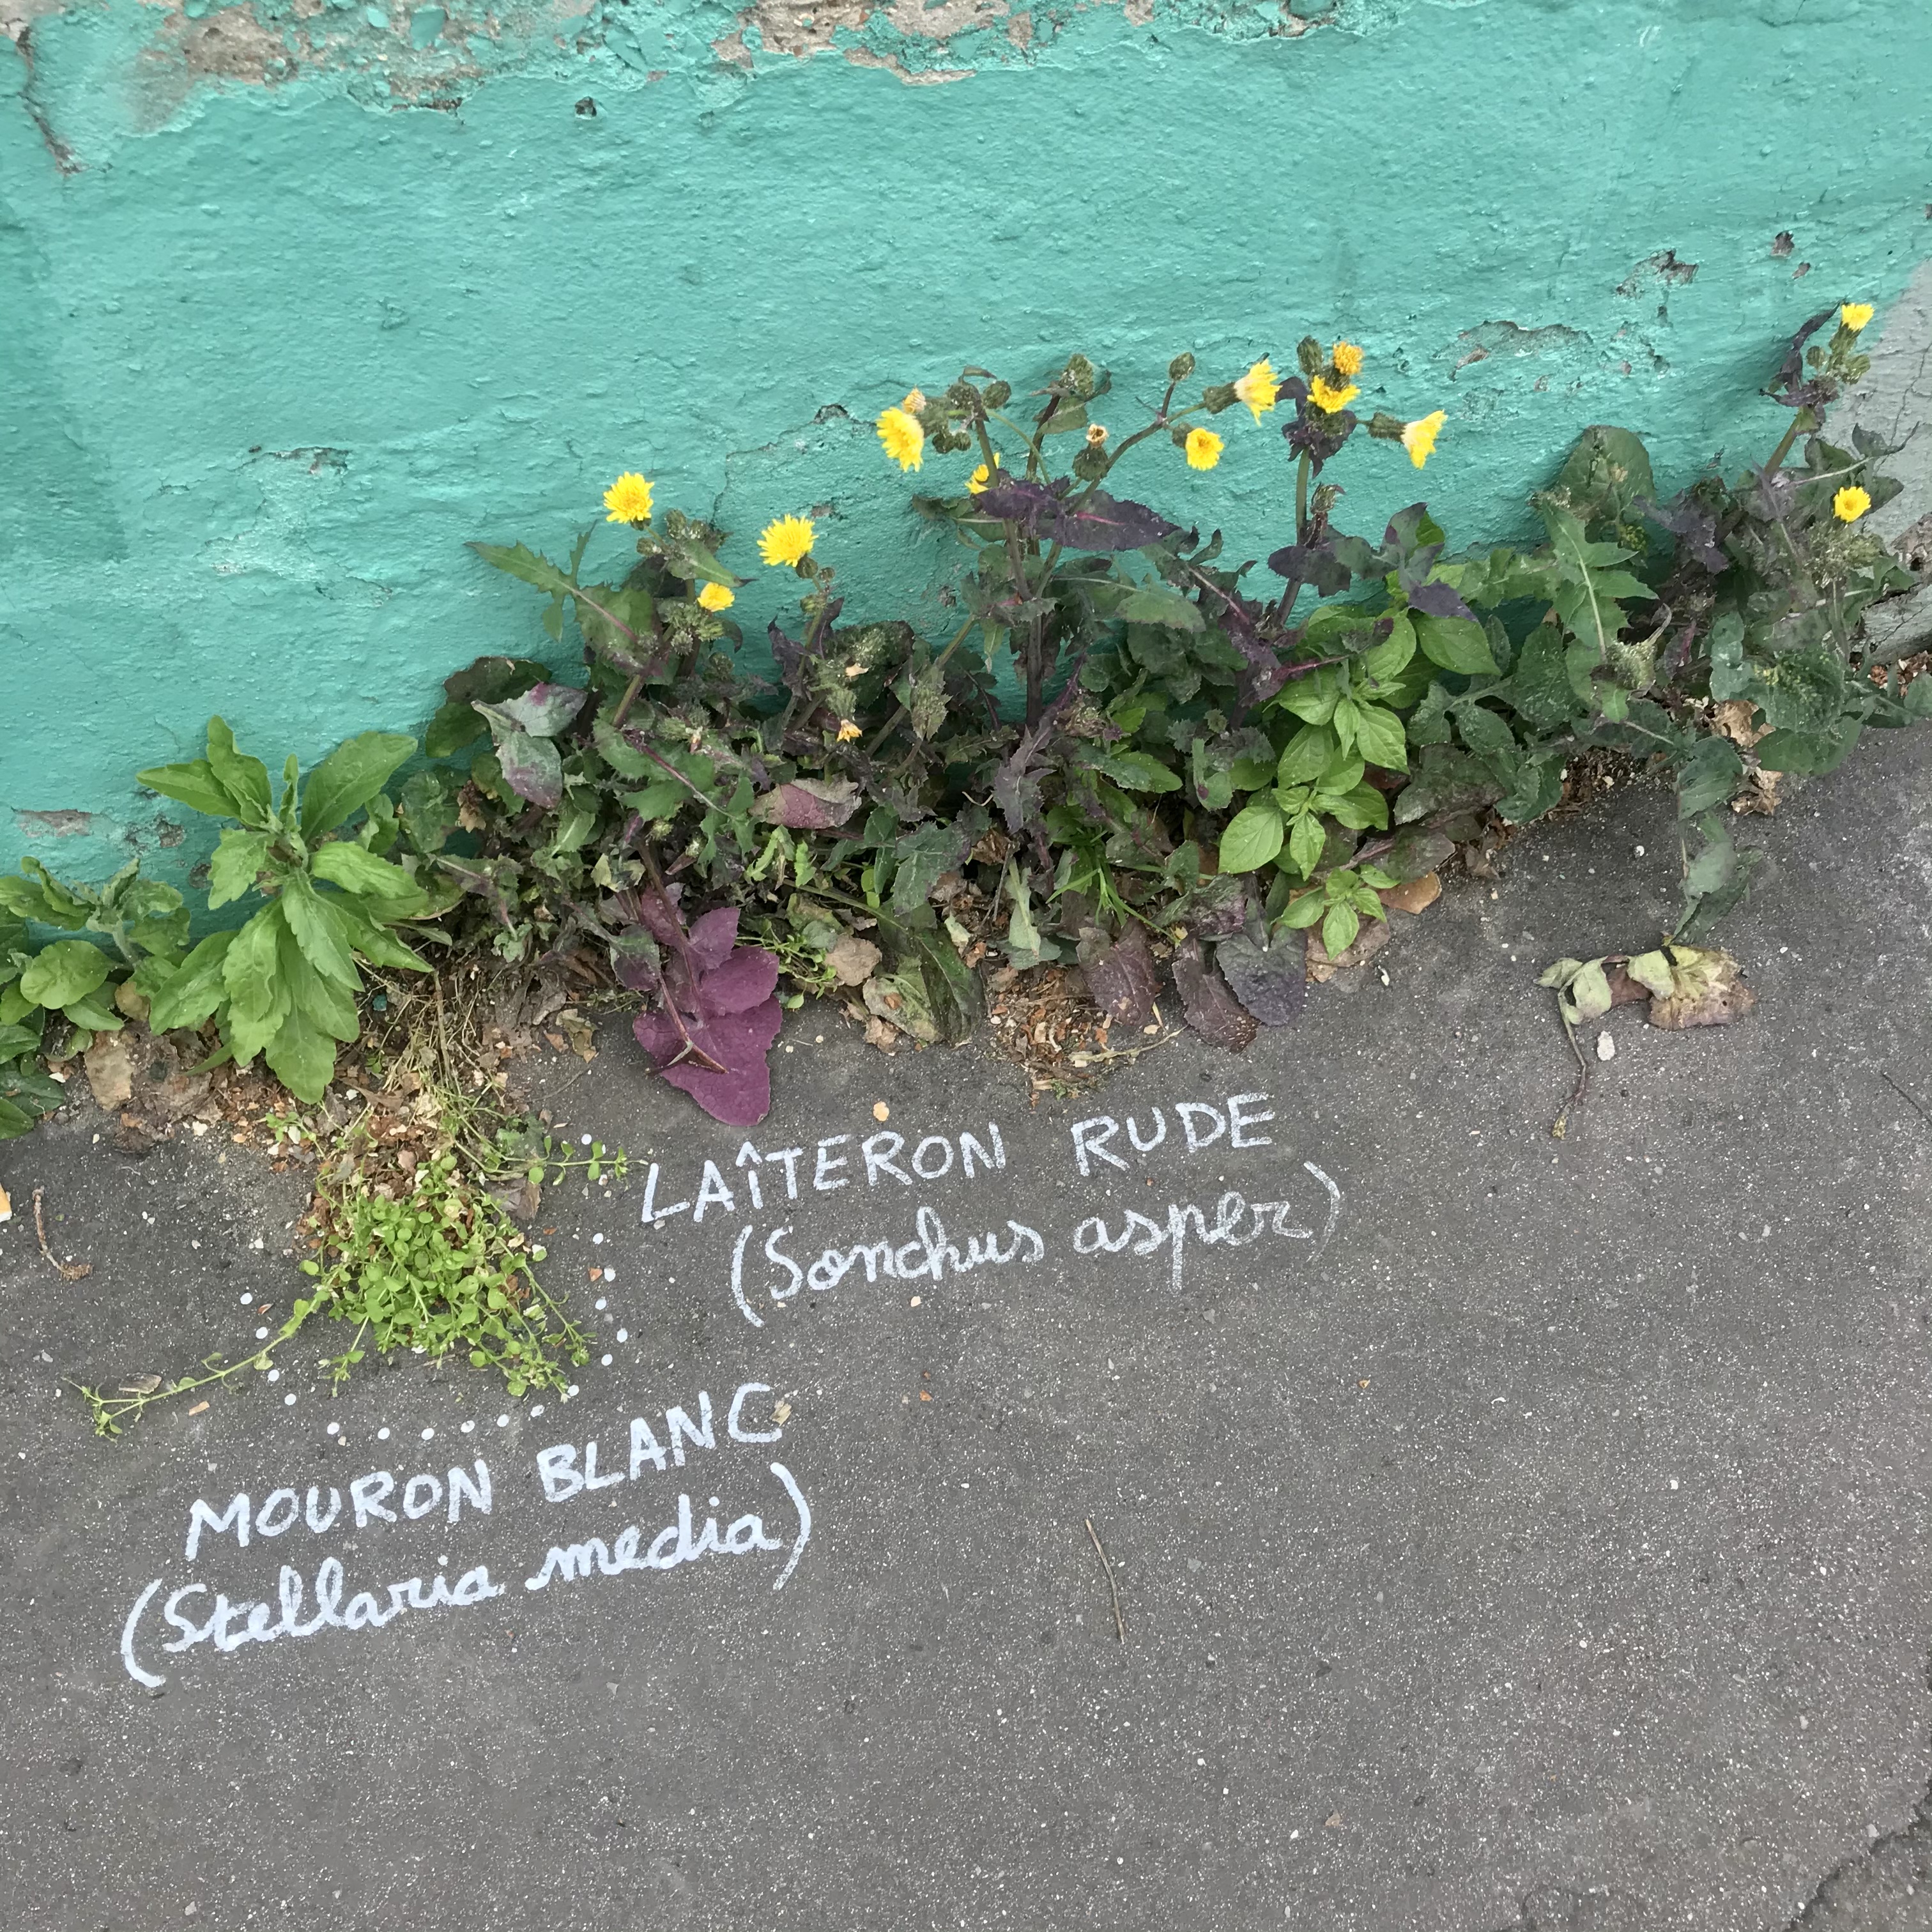 LAÎTERON RUDE
(Sonchus asper)
MOURON BLANC
(Stellaria media)